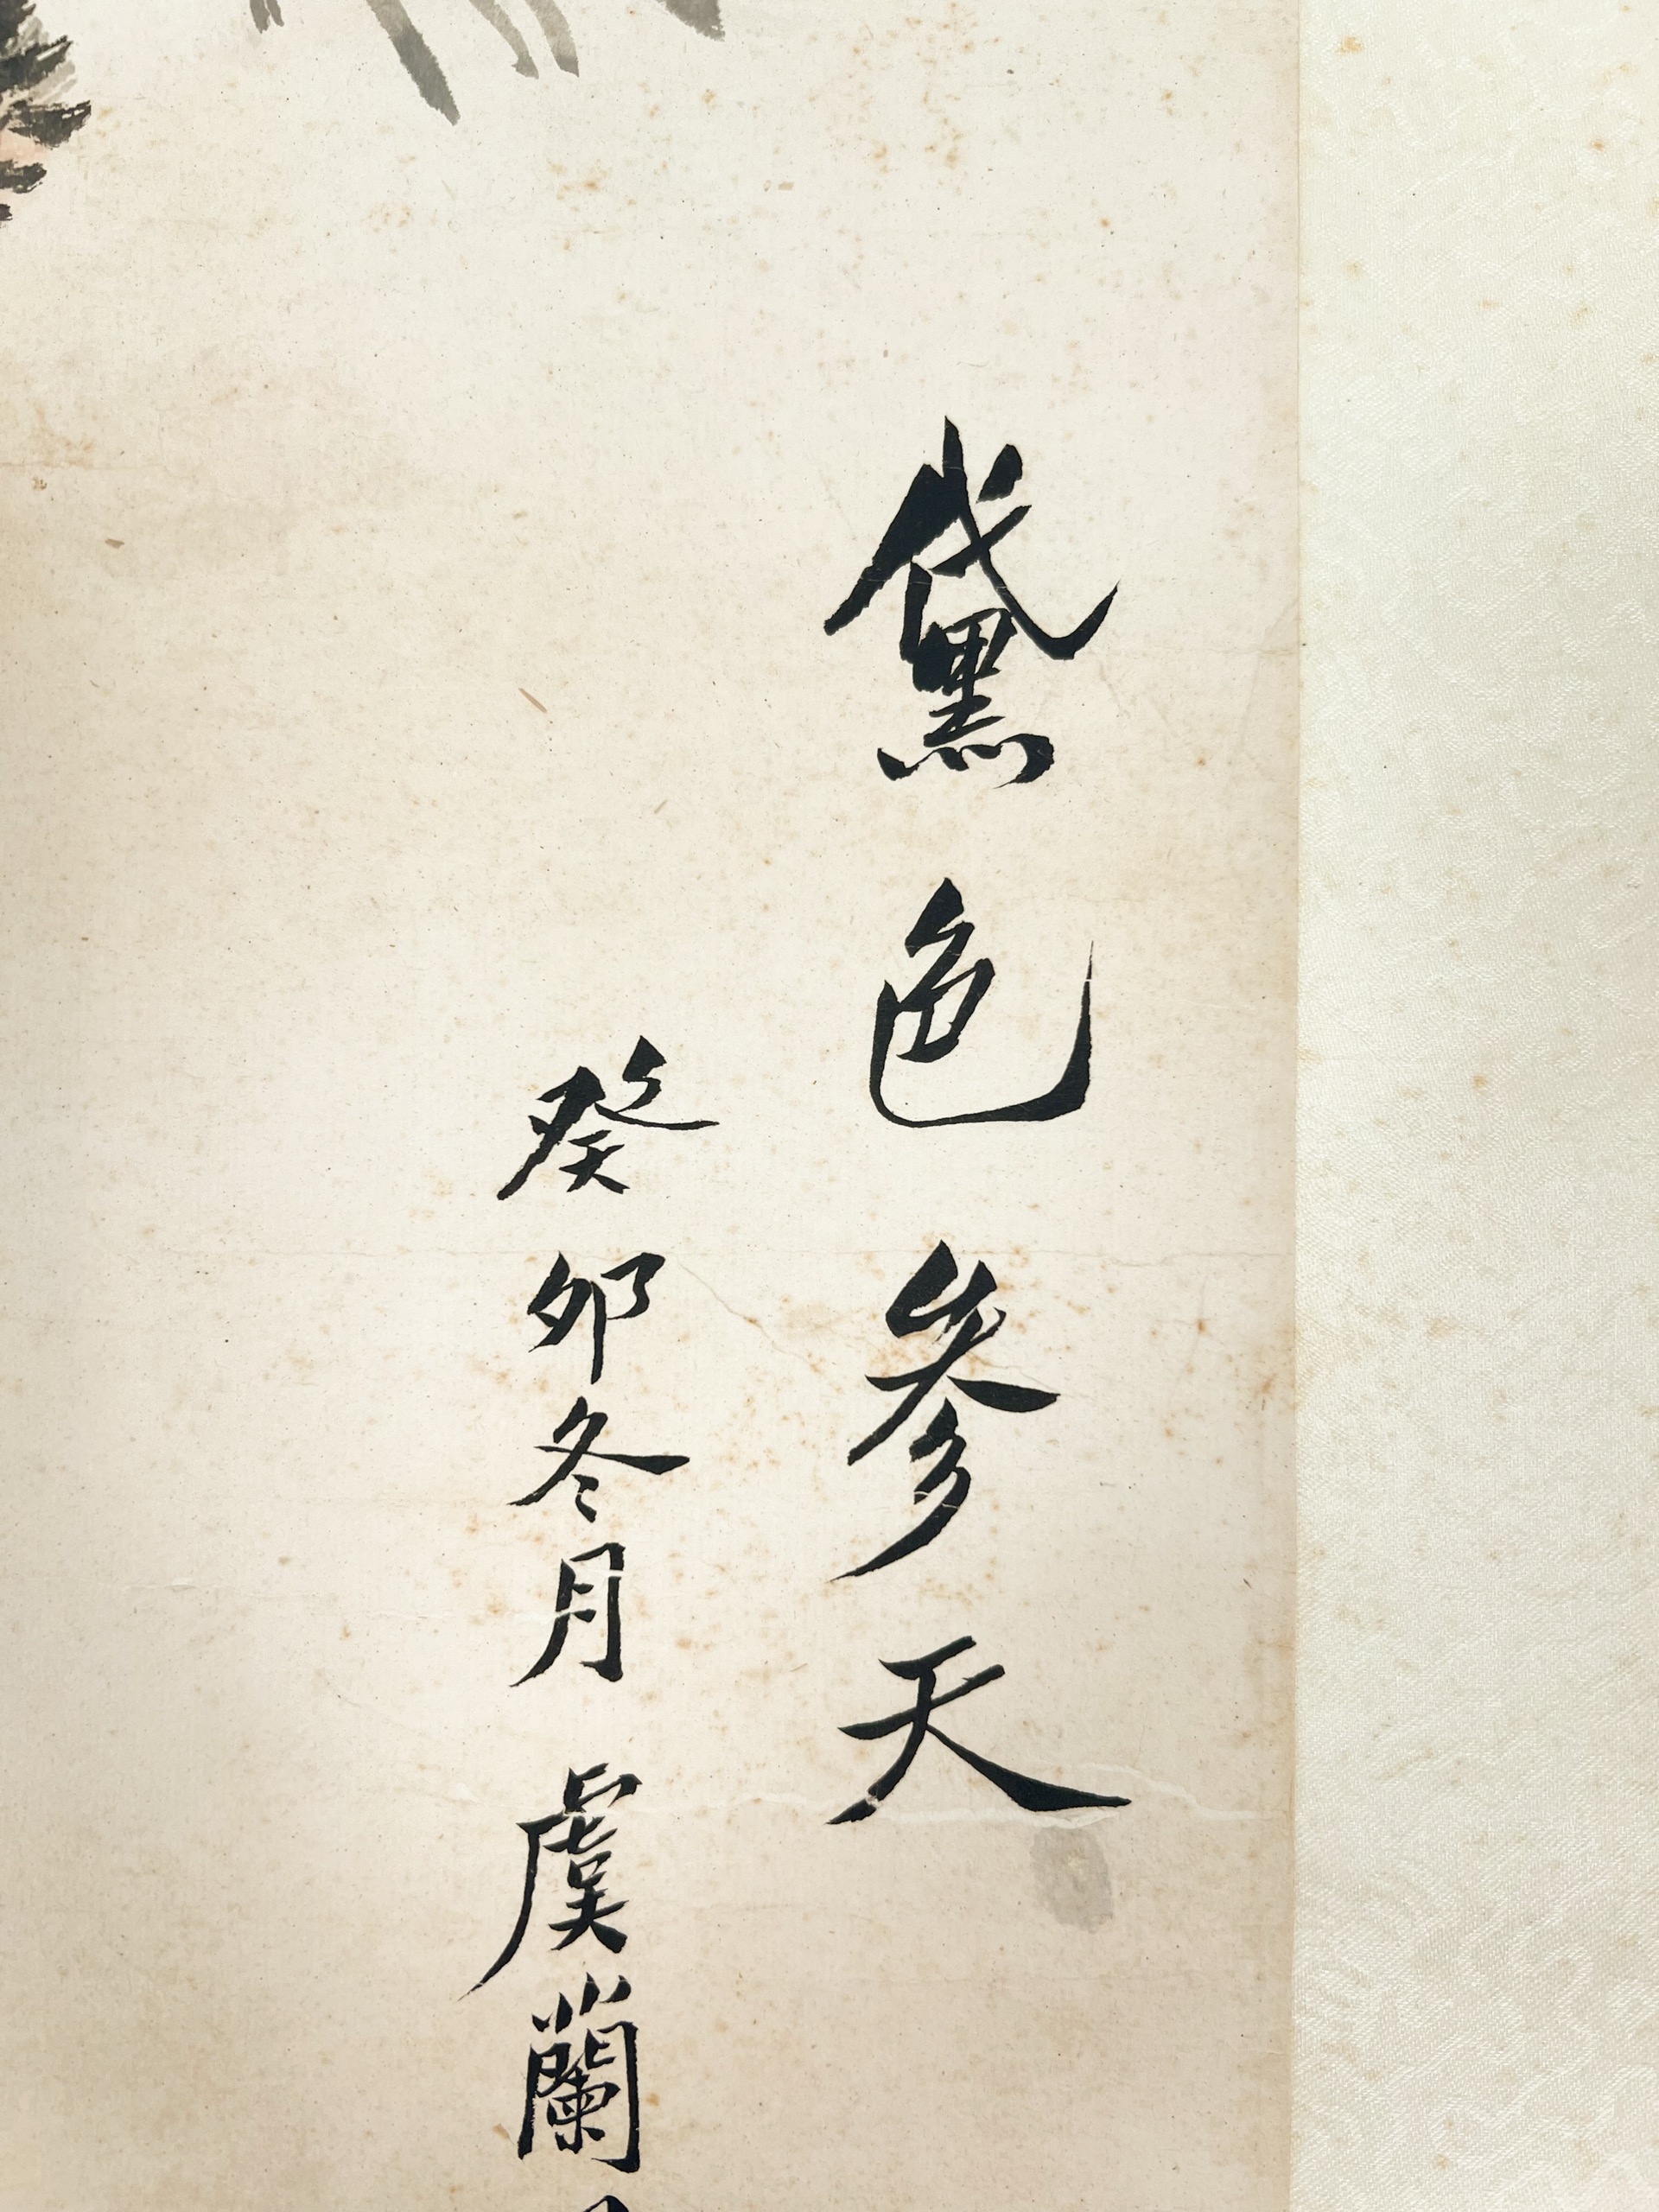 黛色參天
癸卯冬月虞蘭